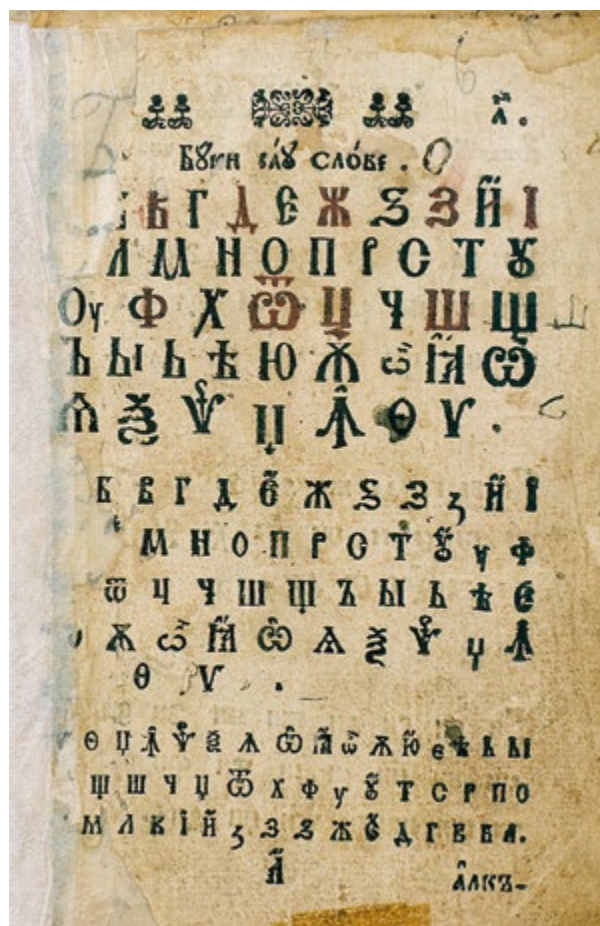 а҃.
Бꙋки саꙋ слове.
В Г Д Е Ж Ѕ З Й І
Л М Н О П Р С Т Ꙋ
Оу Ф Х Ѿ Ц Ч Ш Щ
Ъ Ы Ь Ѣ Ю Ѫ ѡ Ꙗ Ѽ
Ѧ Ѯ Ѱ Џ Ꙟ Ѳ Ѵ .
Б В Г Д Е Ж Ѕ З ꙁ Й І
М Н О П Р С Т Ꙋ у Ф
Ѿ Ц Ч Ш Щ Ъ Ы Ь Ѣ Є
Ѫ Ѡ Ꙗ Ѽ Ѧ Ѯ Ѱ Џ Ꙟ
Ѳ Ѵ .
ѵ ѳ џ ꙟ ѱ ѯ ѧ ѽ ꙗ ѡ ѫ ю є ѣ ь ы
щ ш ч ц ѿ х ф у ꙋ т с р п о
м л к і й ꙁ з ѕ ж е д г в б а.
а҃
алкъ-